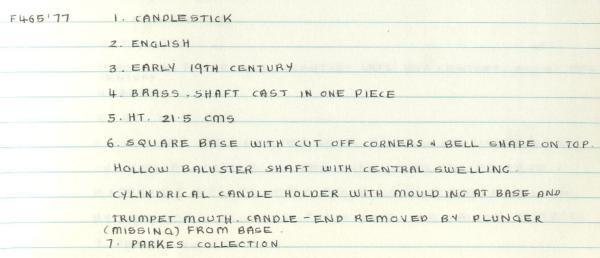 F465'77 1. CANDLESTICK
2. ENGLISH
3. EARLY 19TH CENTURY
4. BRASS. SHAFT CAST IN ONE PIECE
5. HT. 21.5 CMS
6. SQUARE BASE WITH CUT OFF CORNERS & BELL SHAPE ON TOP.
HOLLOW BALUSTER SHAFT WITH CENTRAL SWELLING.
CYLINDRICAL CANDLE HOLDER WITH MOULDING AT BASE AND
TRUMPET MOUTH. CANDLE-END REMOVED BY PLUNGER
(MISSING) FROM BASE.
7. PARKES COLLECTION